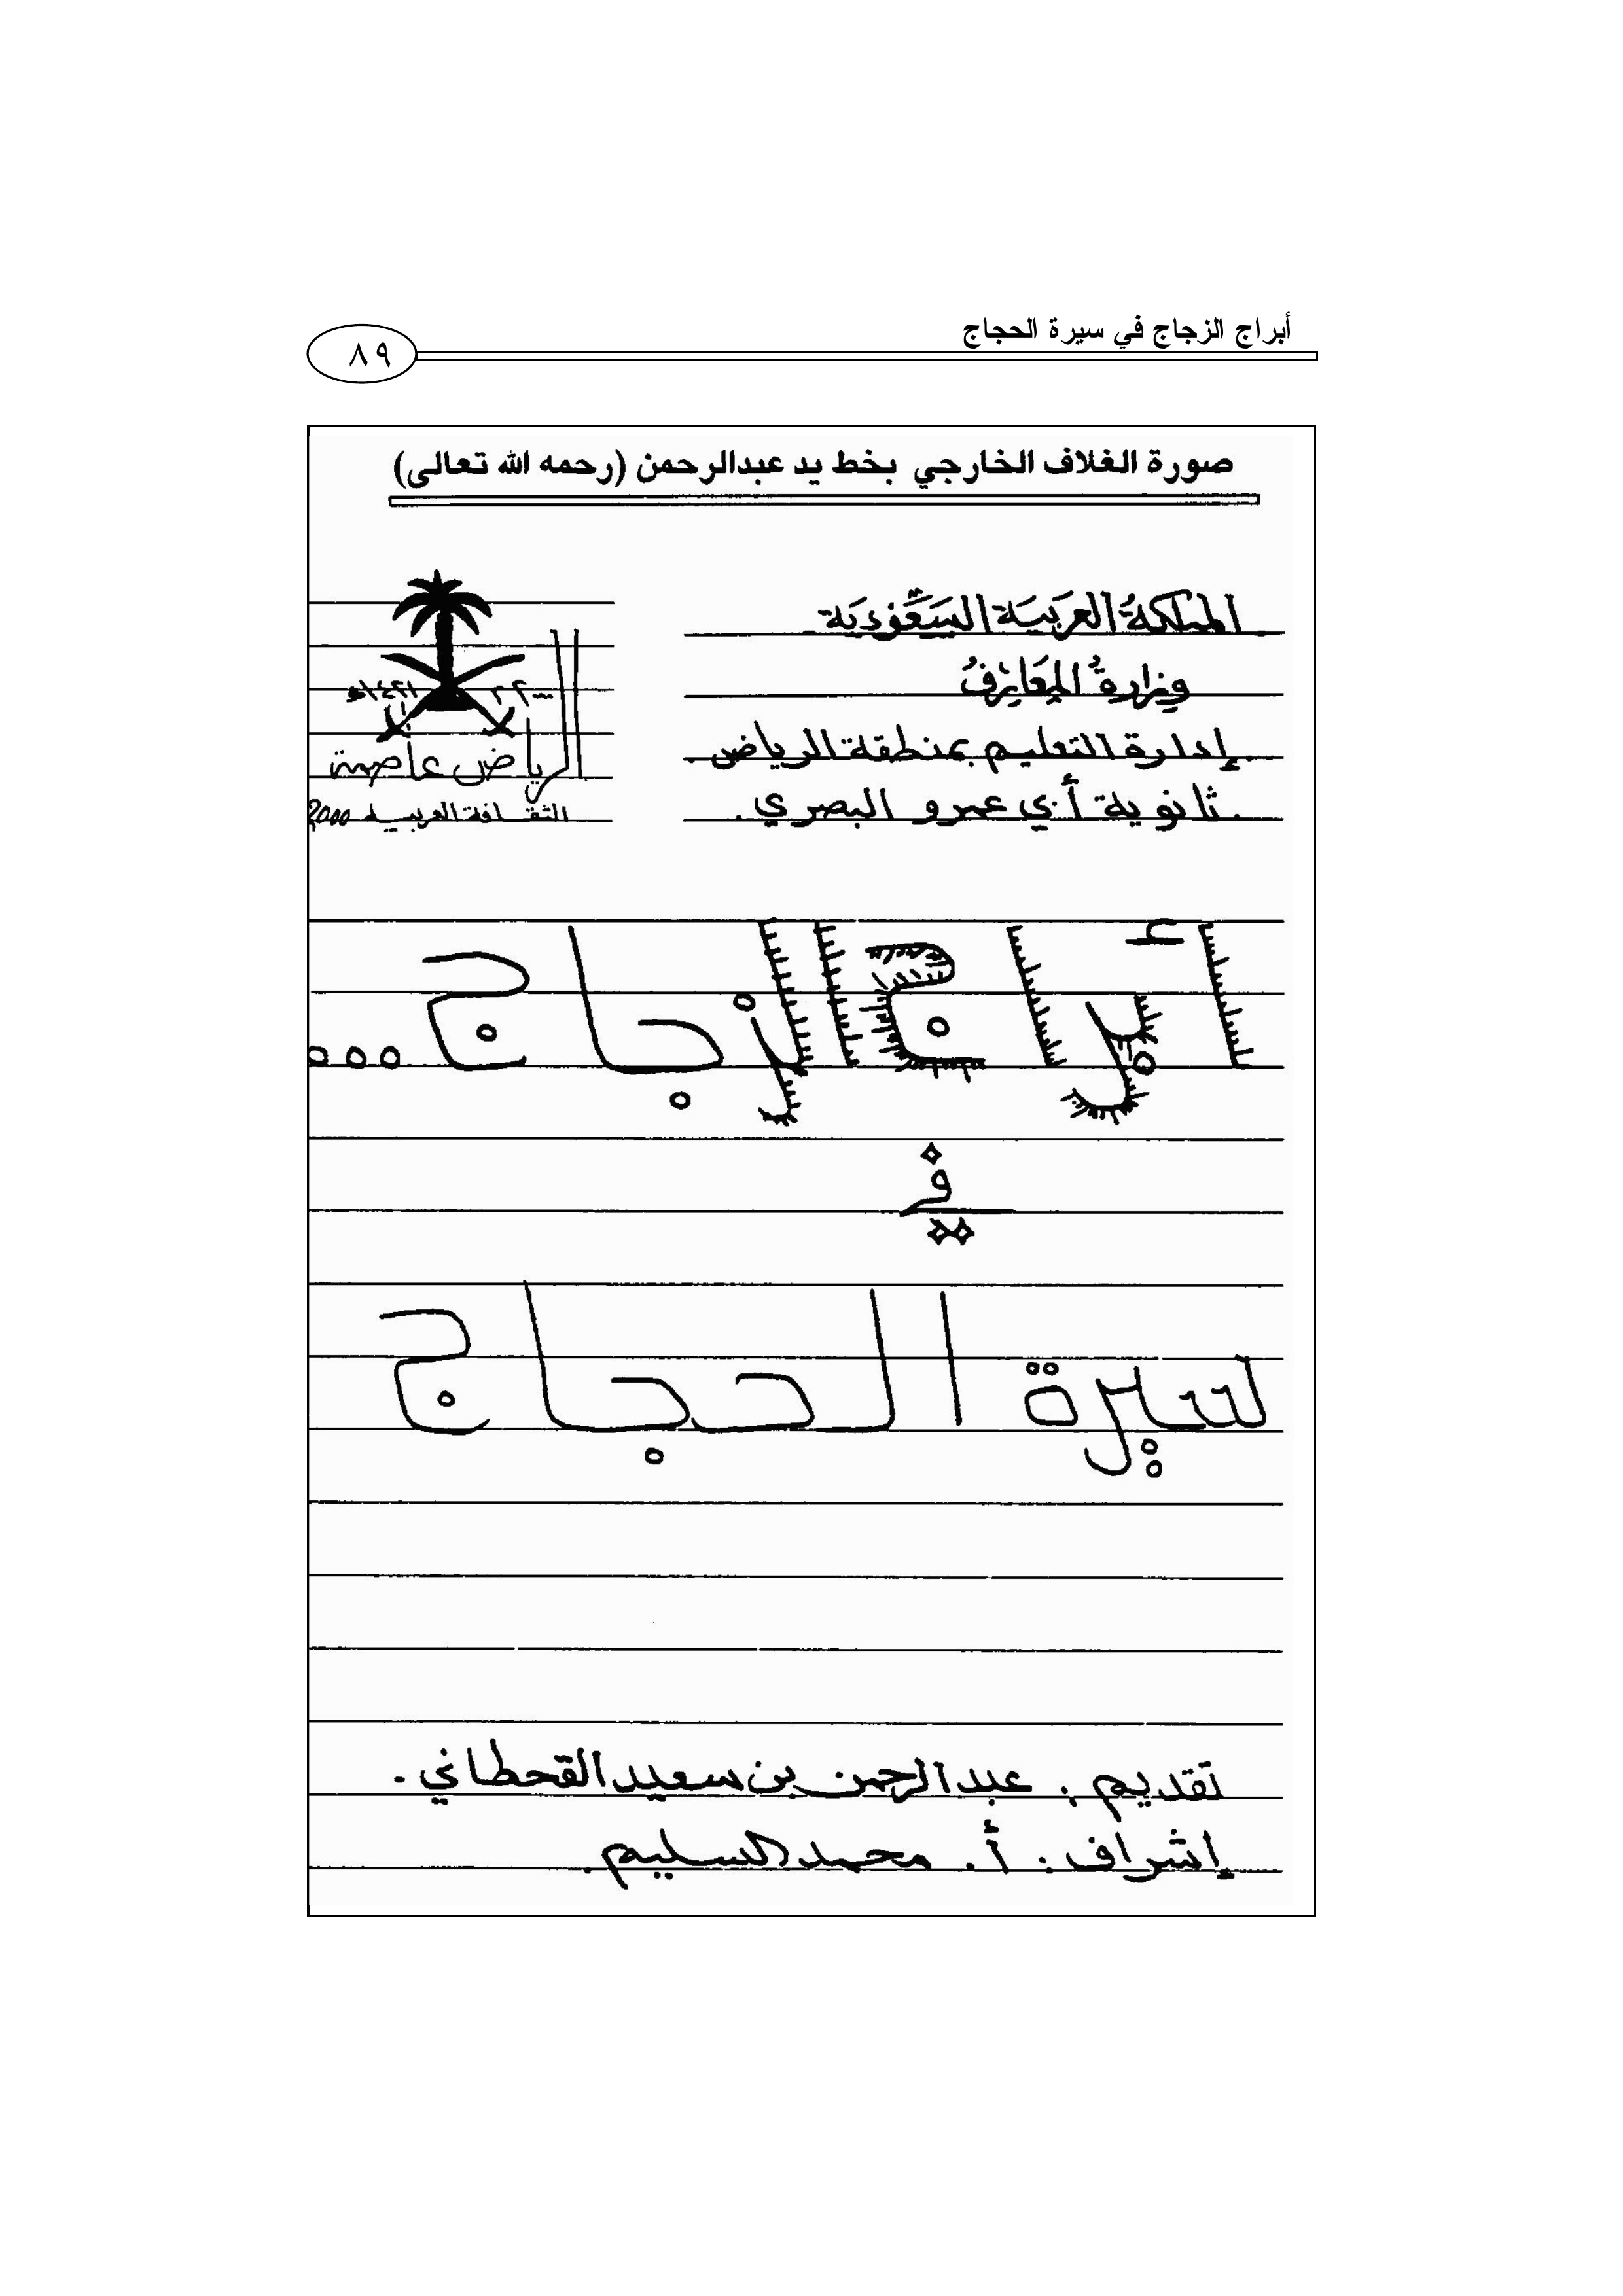 أبراج الزجاج في سيرة الحجاج
٨٩
صورة الغلاف الخارجي بخط يد عبدالرحمن (رحمه الله تعالى)
المملكة العربية السعودية
وزارة المعارف
إدارة التعليم بمنطقة الرياض.
ثانوية أبي عمرو البصري.
١٤٢١هـ
الرياض عاصمة
الثقافة العربية 2000
أبراج الزجاج...
في
سيرة الحجاج
تقديم: عبدالرحمن بن سعيد القحطاني.
إشراف: أ. محمد السليم.